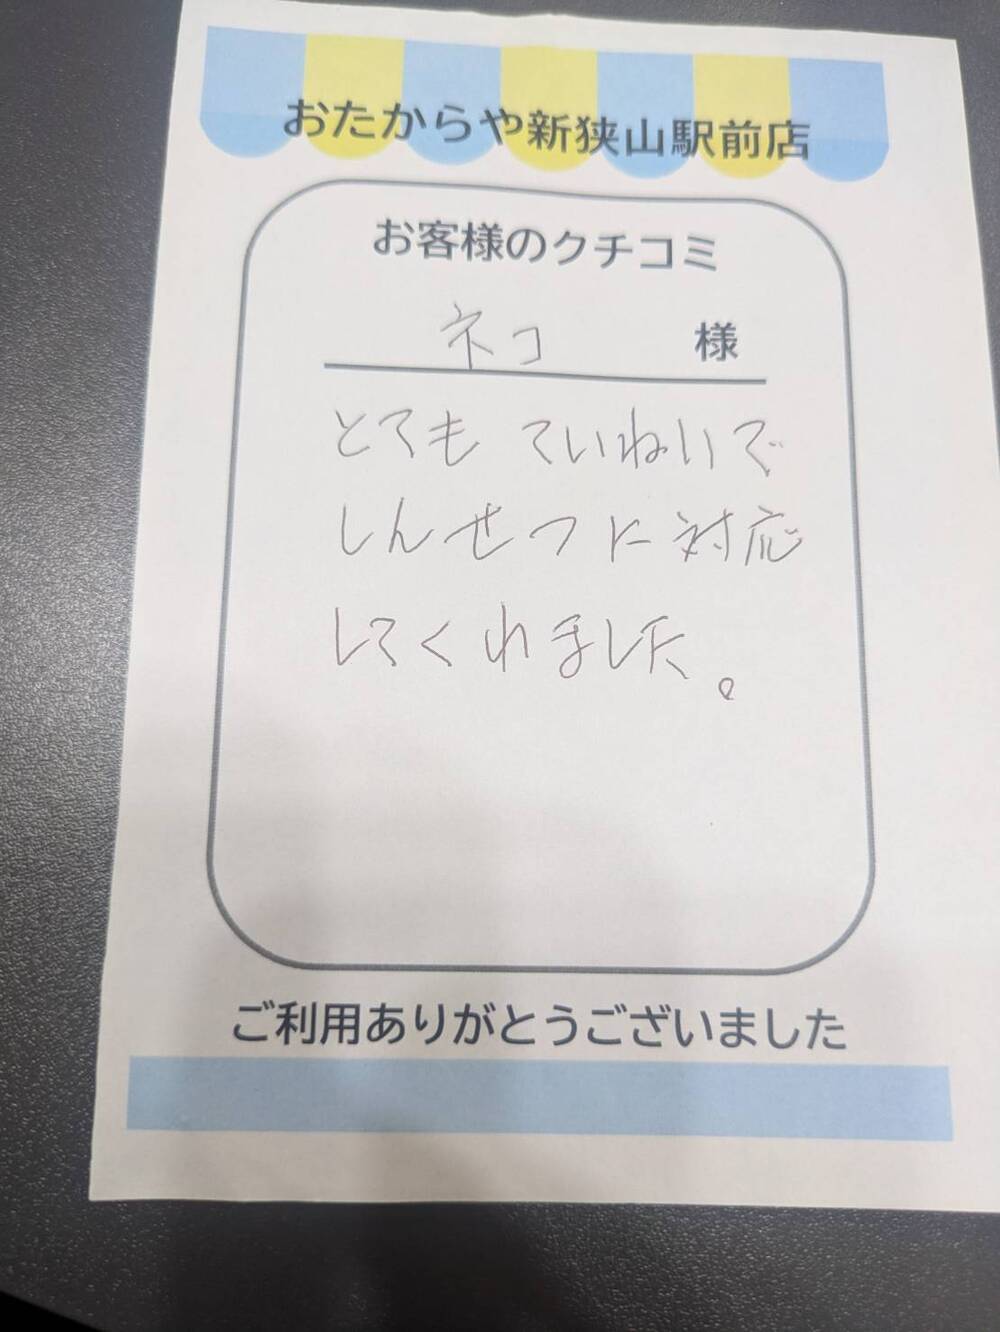 おたからや新狭山駅前店
お客様のクチコミ
ネコ 様
とても ていねいで
しんせつに対応
してくれました。
ご利用ありがとうございました